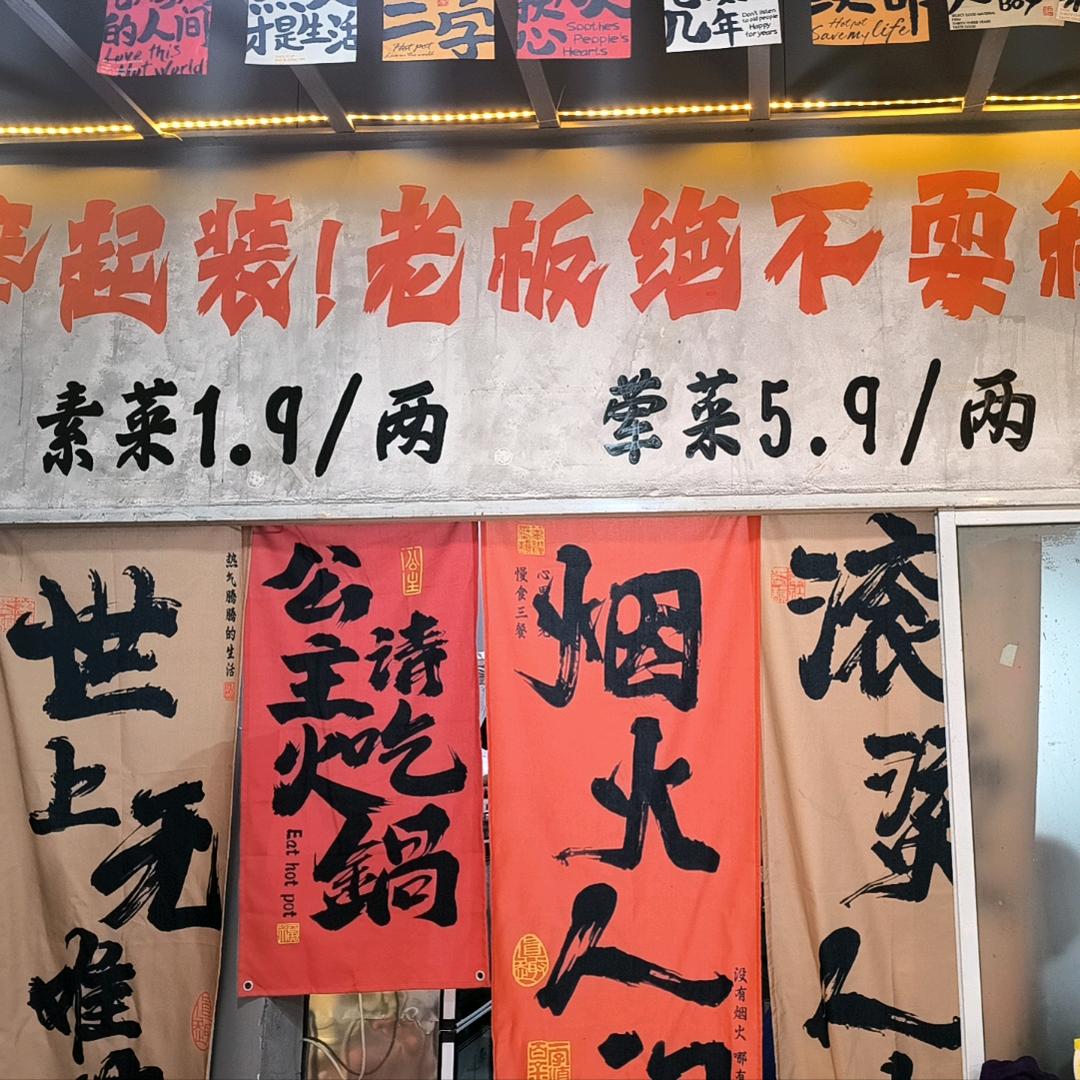 的人间
Love this
Hot World
才是生活
二字
Hot pot
Soothes
People's
Hearts
几年
Don't listen
to old people
Happy
for years
Hot pot
Save my life
起装!老板绝不耍
素菜1.9/两
荤菜5.9/两
世上无唯
热气腾腾的生活
公主请吃火鍋
Eat hot pot
慢食三餐
烟火人间
没有烟火 哪有
滚滚人